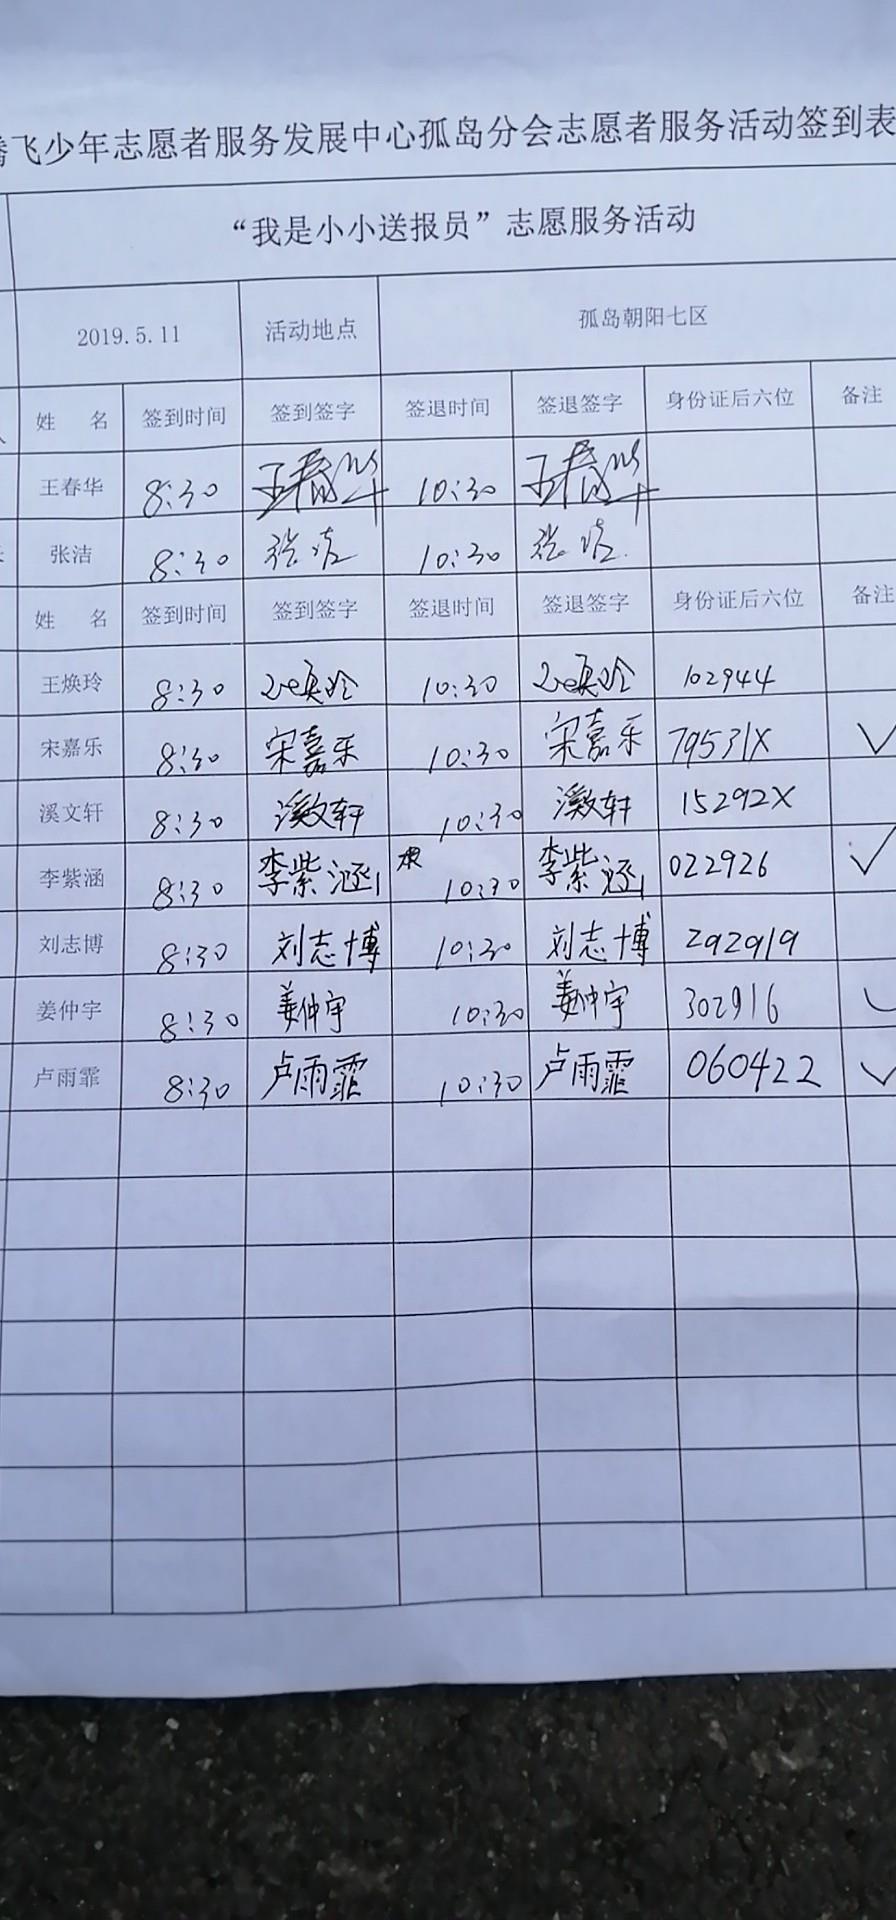 腾飞少年志愿者服务发展中心孤岛分会志愿者服务活动签到表
“我是小小送报员”志愿服务活动
2019.5.11 活动地点 孤岛朝阳七区
姓 名 签到时间 签到签字 签退时间 签退签字 身份证后六位 备注
王春华 8:30 王春华 10:30 王春华
张洁 8:30 张洁 10:30 张洁
姓 名 签到时间 签到签字 签退时间 签退签字 身份证后六位 备注
王焕玲 8:30 王焕玲 10:30 王焕玲 102944
宋嘉乐 8:30 宋嘉乐 10:30 宋嘉乐 79531X
溪文轩 8:30 溪文轩 10:30 溪文轩 15292X
李紫涵 8:30 李紫涵 10:30 李紫涵 022926
刘志博 8:30 刘志博 10:30 刘志博 292919
姜仲宇 8:30 姜仲宇 10:30 姜仲宇 302916
卢雨霏 8:30 卢雨霏 10:30 卢雨霏 060422